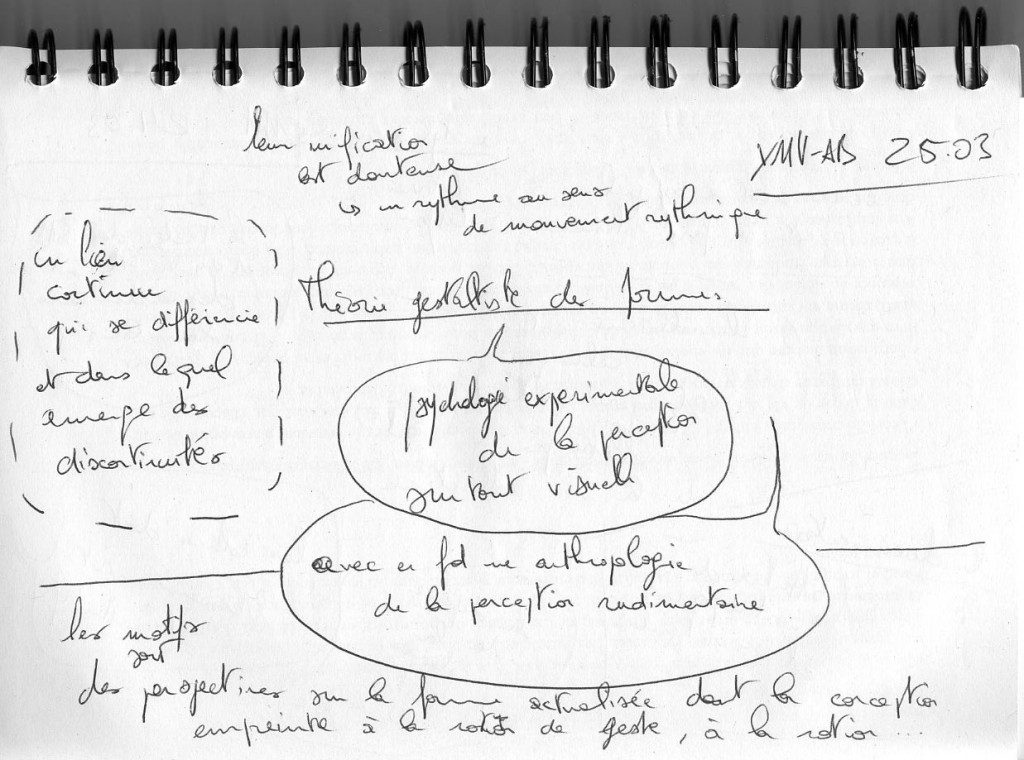 leur unification
est douteuse
YMV-AB 25.03
un rythme au sens
de mouvement rythmique
un lieu
continu
qui se différencie
et dans lequel
émerge des
discontinuités
Théorie gestaltiste des formes.
psychologie expérimentale
de la perception
surtout visuelle
avec en fd une anthropologie
de la perception rudimentaire
les motifs
sont
des perspectives sur la forme actualisée dont la conception
emprunte à la notion de geste, à la notion ...